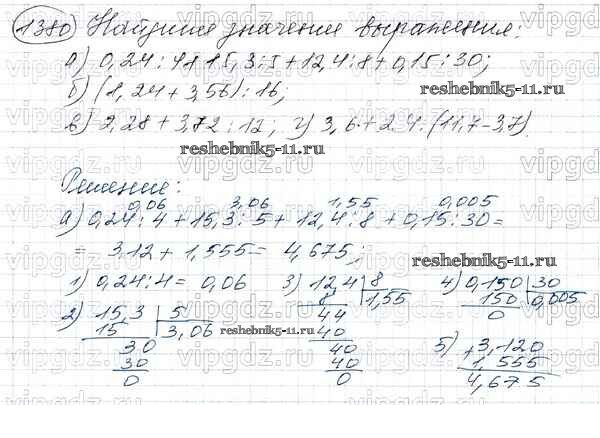 1380 Найдите значение выражения:
а) 0,24 : 4 + 15,3 : 5 + 12,4 : 8 + 0,15 : 30;
б) (1,24 + 3,56) : 16;
reshebnik5-11.ru
в) 2,28 + 3,72 : 12; г) 3,6 + 2,4 : (11,7 - 3,7)
reshebnik5-11.ru
Решение:
0,06 3,06 1,55 0,005
а) 0,24 : 4 + 15,3 : 5 + 12,4 : 8 + 0,15 : 30 =
= 3,12 + 1,555 = 4,675;
reshebnik5-11.ru
1) 0,24 : 4 = 0,06 3) 12,4 8 4) 0,150 30
8 1,55 150 0,005
2) 15,3 5 44 0
15 3,06 reshebnik5-11.ru 40
30 40 5) + 3,120
30 40 1,555
0 0 4,675